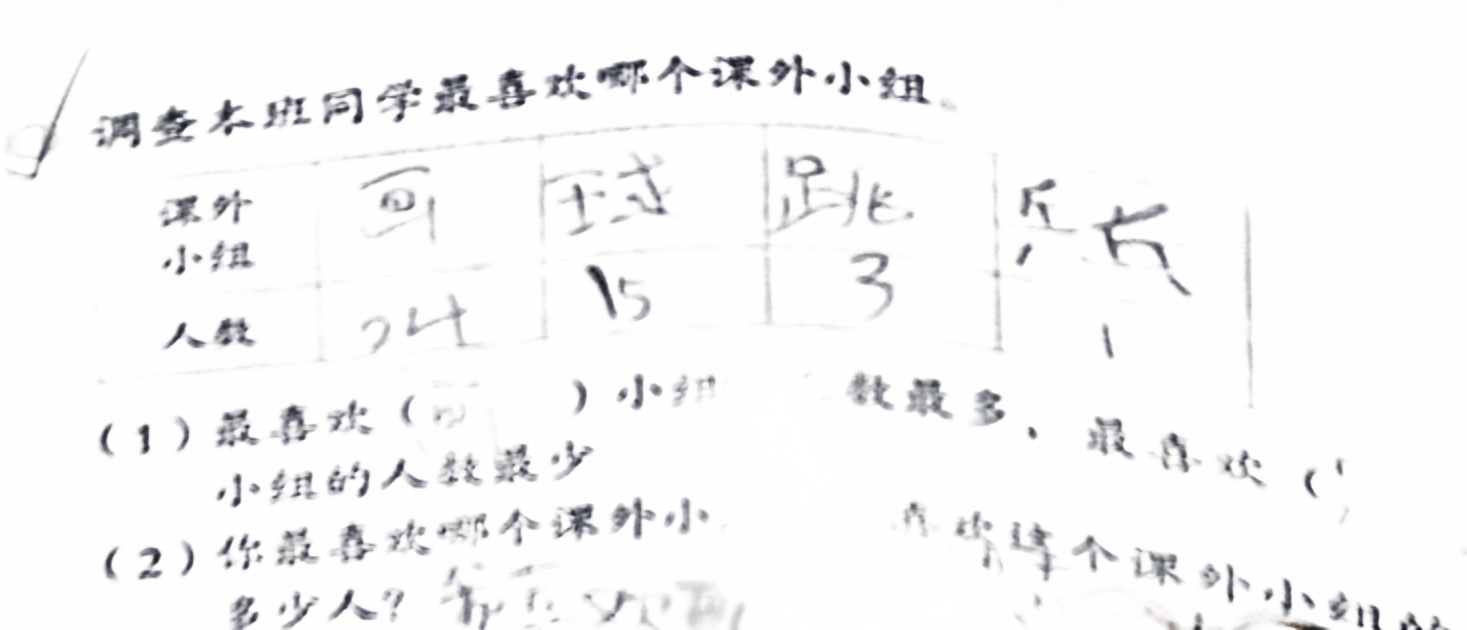 调查本班同学最喜欢哪个课外小组。
课外小组 画 球 跳 乒长
人数 24 15 3 1
(1)最喜欢(画)小组 数最多,最喜欢(
小组的人数最少
(2)你最喜欢哪个课外小 喜欢这个课外小组的
多少人?